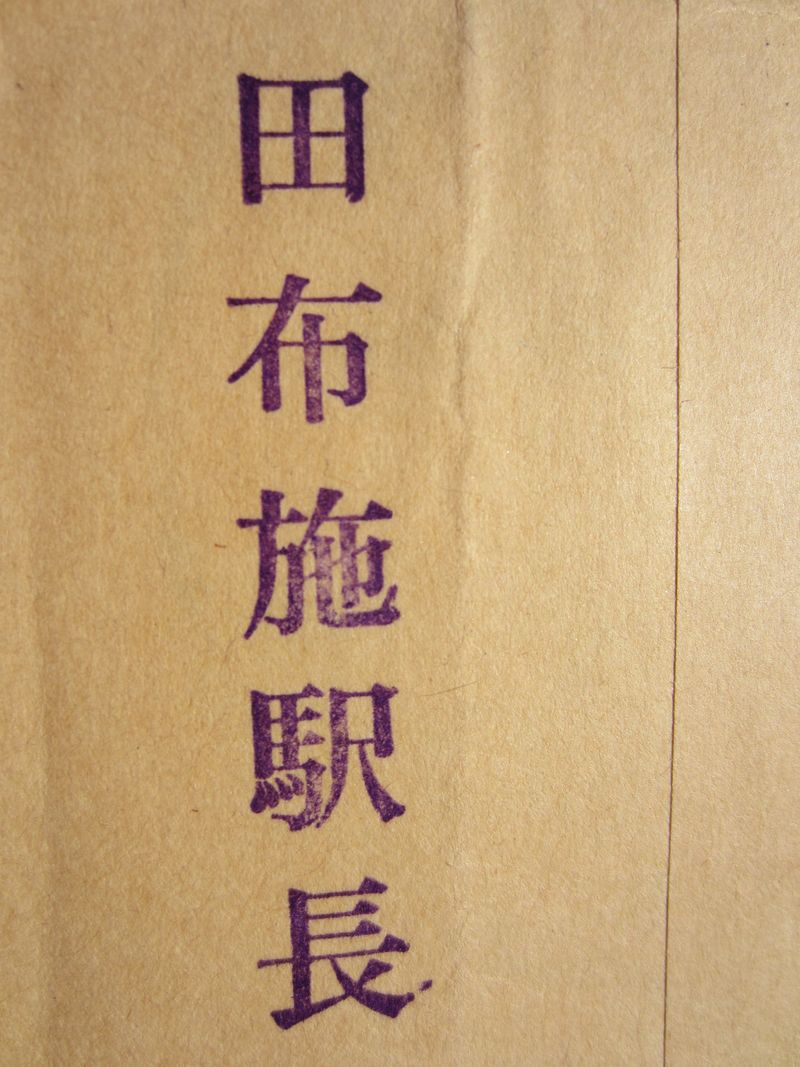 田布施駅長